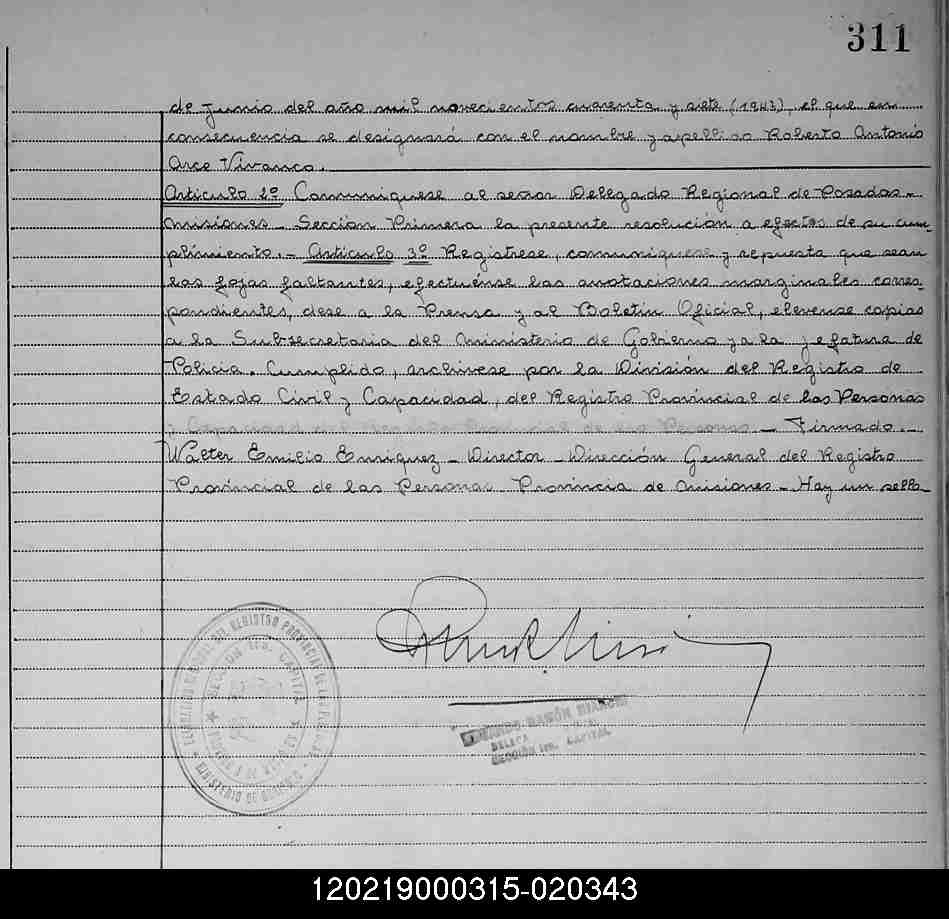 311
de Junio del año mil novecientos cuarenta y siete (1943), el que en
consecuencia se designará con el nombre y apellido Roberto Antonio
Arce Vivanco.
Artículo 2º Comuníquese al señor Delegado Regional de Posadas-
Misiones - Sección Primera la presente resolución a efectos de su cum-
plimiento.- Artículo 3º Regístrese, comuníquese y repuesta que sean
las fojas faltantes, efectuénse las anotaciones marginales corres-
pondientes, dese a la Prensa y al Boletín Oficial, elevense copias
a la Subsecretaria del Ministerio de Gobierno y a la Jefatura de
Policía. Cumplido, archívese por la División del Registro de
Estado Civil y Capacidad, del Registro Provincial de las Personas
y Capacidad Provincial de las Personas - Firmado.-
Walter Emilio Enriquez - Director - Dirección General del Registro
Provincial de las Personas Provincia de Misiones - Hay un sello
REGISTRO PROVINCIAL DE LAS
SECCIÓN 1ra. CAPITAL
MINISTERIO DE GOBIERNO
RAMÓN
SECCIÓN 1ra. CAPITAL
120219000315-020343